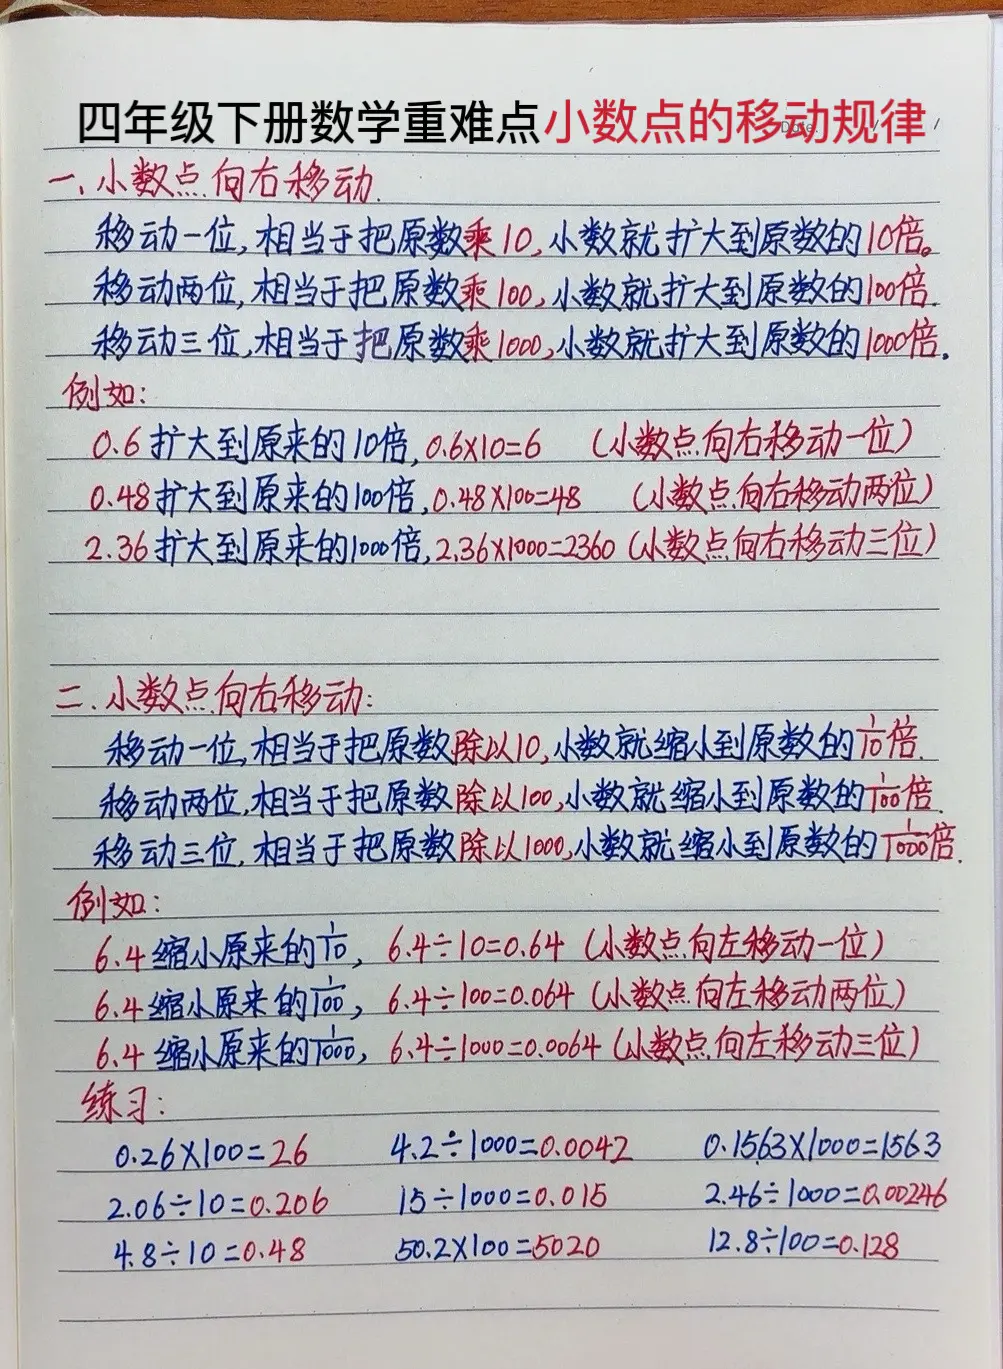 四年级下册数学重难点小数点的移动规律
一、小数点向右移动.
移动一位,相当于把原数乘10,小数就扩大到原数的10倍。
移动两位,相当于把原数乘100,小数就扩大到原数的100倍.
移动三位,相当于把原数乘1000,小数就扩大到原数的1000倍.
例如:
0.6扩大到原来的10倍,0.6×10=6 (小数点向右移动一位)
0.48扩大到原来的100倍,0.48×100=48 (小数点向右移动两位)
2.36扩大到原来的1000倍,2.36×1000=2360 (小数点向右移动三位)
二.小数点向右移动:
移动一位,相当于把原数除以10,小数就缩小到原数的1/10倍.
移动两位,相当于把原数除以100,小数就缩小到原数的1/100倍.
移动三位,相当于把原数除以1000,小数就缩小到原数的1/1000倍.
例如:
6.4缩小原来的1/10, 6.4÷10=0.64 (小数点向左移动一位)
6.4缩小原来的1/100, 6.4÷100=0.064 (小数点向左移动两位)
6.4缩小原来的1/1000, 6.4÷1000=0.0064 (小数点向左移动三位)
练习:
0.26×100=26 4.2÷1000=0.0042 0.1563×1000=156.3
2.06÷10=0.206 15÷1000=0.015 2.46÷1000=0.00246
4.8÷10=0.48 50.2×100=5020 12.8÷100=0.128